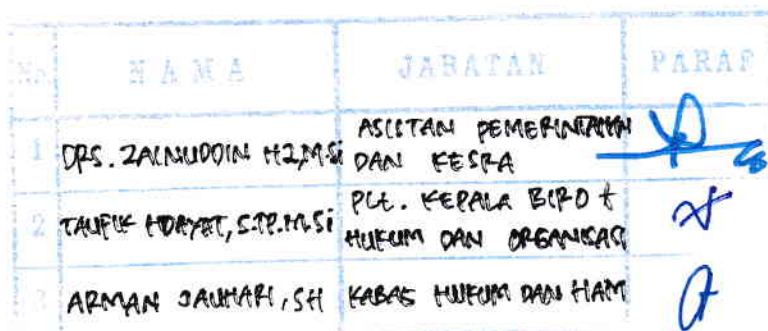 No. NAMA JABATAN PARAF
1 DRS. ZAINUDDIN HZ, M.Si ASISTAN PEMERINTAHAN
DAN KESRA
2 TAUFIK HIDAYAT, S.TP. M.Si PLt. KEPALA BIRO
HUKUM DAN ORGANISASI
3 ARMAN JAUHARI, SH KABAG HUKUM DAN HAM